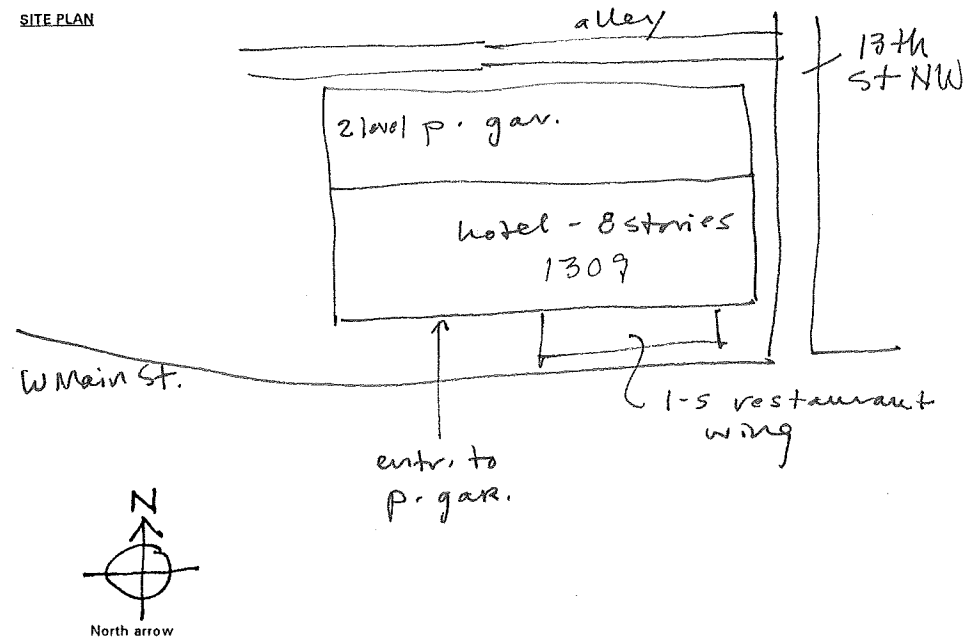 SITE PLAN
alley
13th
St NW
2 level p. gar.
hotel - 8 stories
1309
W Main St.
1-s restaurant
wing
entr. to
p. gar.
N
North arrow